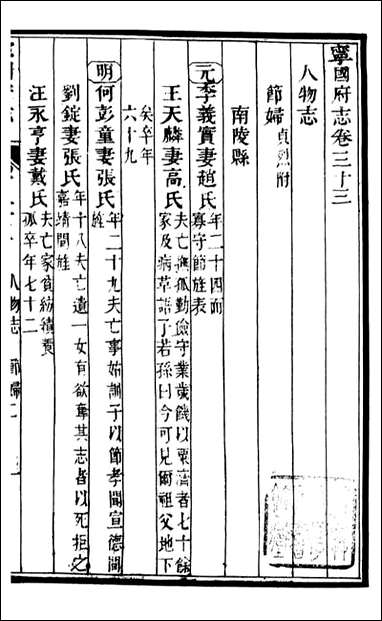 寧國府志卷三十三
人物志
節婦貞烈附
南陵縣
元李義實妻趙氏年二十四而寡守節旌表
王天麟妻高氏夫亡撫孤勤儉守業歲饑以粟濟者七十餘家及病革語子若孫曰今可見爾祖父地下矣卒年六十九
明何彭童妻張氏年二十九夫亡事姑訓子以節孝聞宣德間旌
劉錠妻張氏年十八夫亡遺一女有欲奪其志者以死拒之嘉靖間旌
汪永亨妻戴氏夫亡家貧紡績養孤卒年七十二
人物志 節婦